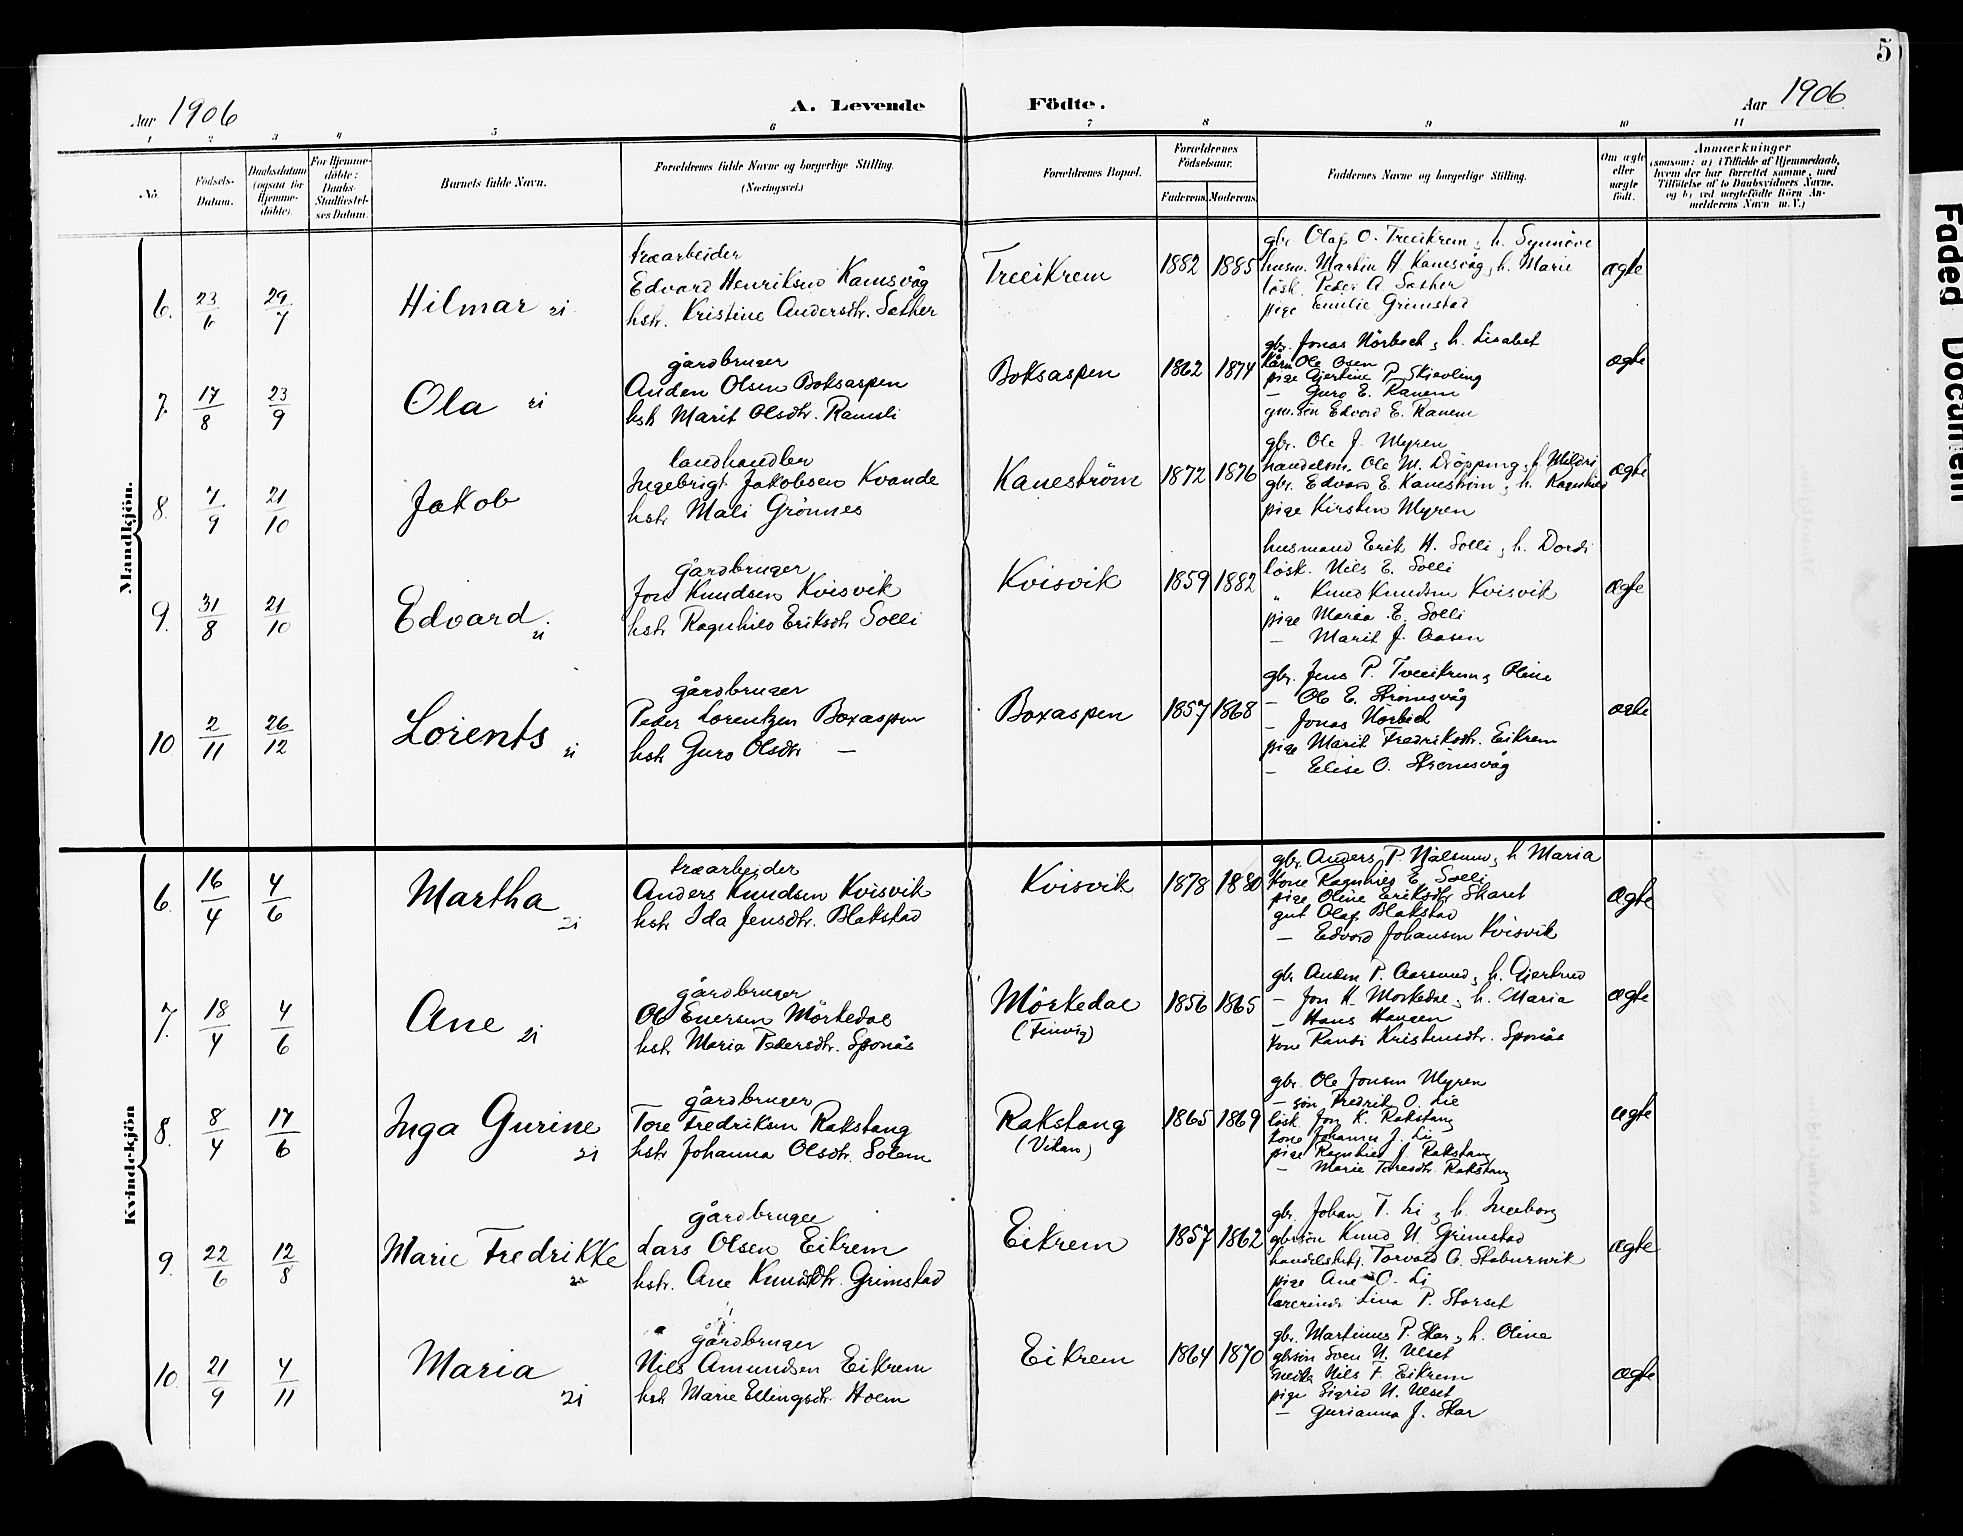 5
Aar 1906
A. Levende Födte.
Aar 1906
1 2 3 4 5 6 7 8 9 10 11
No.
Födsels-
Datum.
Daabsdatum
(ogsaa for
Hjemme-
döbte).
For Hjemme-
döbte:
Daabs-
Stadfæstel-
ses Datum.
Barnets fulde Navn.
Forældrenes fulde Navne og borgerlige Stilling.
(Næringsvei.)
Forældrenes Bopæl.
Forældrenes
Födselsaar.
Faderens. Moderens.
Faddernes Navne og borgerlige Stilling.
Om ægte
eller
uægte
födt.
Anmærkninger
(saasom: a) i Tilfælde af Hjemmedaab,
hvem der har forrettet samme, med
Tilföielse af to Daabsvidners Navne,
og b) ved uægtefödte Börn An-
melderens Navn m. V.)
Mandkjön.
6. 23/6 29/7
Hilmar
træarbeider
Edvard Henriksen Kanesvåg
hstr. Kristine Andersdtr. Sæther
Treeikrem
1882 1885
gbr. Olaf O. Treeikrem, h. Synnöve
husm. Martin H Kanesvåg, h. Marie
lösk. Peder A. Sæther
pige Emilie Grimstad
ægte
7. 17/8 23/9
Ola
gårdbruger
Anden Olsen Boksaspen
hstr Marit Olsdtr. Ramsli
Boksaspen
1862 1874
gbr. Jonas Nörbech, h. Lisabet
Kårm Ole Osen
pige Gjertine P. Skjevling
— Guro E. Ranem
gbr. sön Edvard E. Ranem
ægte
8. 7/9 21/10
Jakob
landhandler
Ingebrigt Jakobsen Kvande
hstr Mali Grönnes
Kaneström
1872 1876
gbr. Ole J. Myren
handelsm. Ole M. Dröpping, h Mildri
gbr. Edvard E. Kaneström, h. Ragnhild
pige Kirsten Myren
ægte
9. 31/8 21/10
Edvard
gårdbruger
Jon Knudsen Kvisvik
hstr Ragnhild Eriksdtr Solli
Kvisvik
1859 1882
husmand Erik H. Solli, h. Dordi
lösk. Nils E. Solli
" Knud Knudsen Kvisvik
pige Maria E. Solli
— Marit J. Aasen
ægte
10 2/11 26/12
Lorents
gårdbruger
Peder Lorentzen Boxaspen
hstr Guro Olsdtr —
Boxaspen
1857 1868
gbr. Jens P. Tveeikrem, Oline
— Ole E. Strömsvåg
— Jonas Nörbech
pige Marit Fredriksdtr. Eikrem
— Elise O. Strömsvåg
ægte
Kvindekjön
6. 16/4 4/6
Martha
træarbeider
Anders Knudsen Kvisvik
hstr Ida Jensdtr. Blakstad
Kvisvik
1878 1880
gbr. Anders P. Nålsund, h Maria
Kone Ragnhild E. Solli
pige Oline Eriksdtr Skaret
gut Olaf Blakstad
— Edvard Johansen Kvisvik
ægte
7. 18/4 4/6
Ane
gårdbruger
Ole Enersen Mörkedal
hstr. Maria Pedersdtr. Sponås
Mörkedal
1856 1865
gbr Anders P. Aarsund, h. Gjertrud
— Jon K. Morkedal, h. Maria
— Hans Haugen
Kone Randi Kristensdtr. Sponås
ægte
8. 8/4 17/6
Inga Gurine
gårdbruger
Tore Fredriksen Rakstang
hstr. Johanna Olsdtr. Solem
Rakstang
(Vikan)
1865 1869
gbr. Ole Jonsen Myren
— sön Fredrik O. Lie
lösk. Jon K. Rakstang
Kone Johanna J. Li
pige Ragnhild J. Rakstang
— Marie Toresdtr Rakstang
ægte
9. 22/6 12/8
Marie Fredrikke
gårdbruger
Lars Olsen Eikrem
hstr. Ane Knudsdtr. Grimstad
Eikrem
1857 1862
gbr. Johan T. Li, h. Ingeborg
gbrsön Knud N. Grimstad
handelsbetj. Torvald A. Staburswik
pige Ane O. Li
lærerinde Lina P. Storset
ægte
10 21/9 4/11
Maria
gårdbruger
Nils Amundsen Eikrem
hstr Marie Ellingsdtr Hoem
Eikrem
1864 1870
gbr. Martinus P. Skar, h. Oline
gbrsön Sven N. Ulset
Nils F. Eikrem
pige Sigrid N. Ulset
— Gurianna J. Skar
ægte
Faded Document